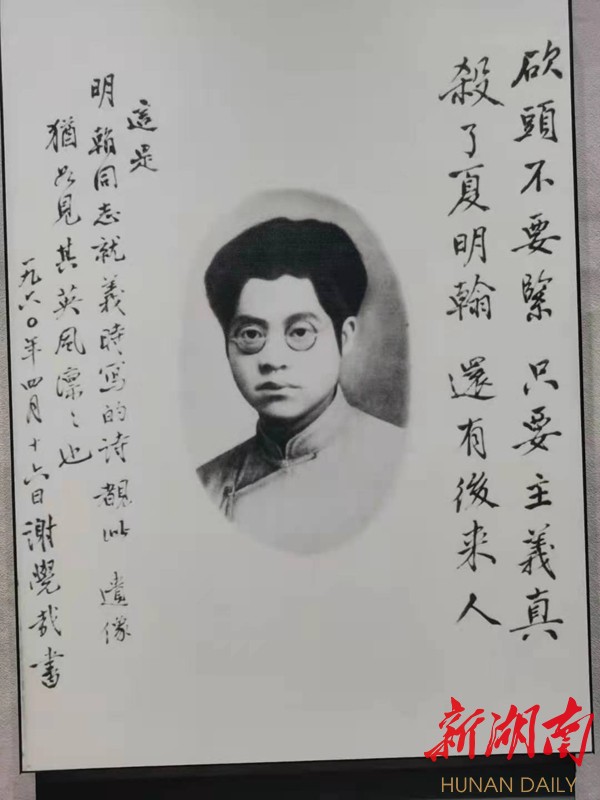 砍頭不要緊 只要主義真
殺了夏明翰 還有後来人
這是
明翰同志就義時寫的詩覩此 遺像
猶如見其英風凛〻也
一九六〇年四月十六日謝覺哉書
新湖南
HUNAN DAILY